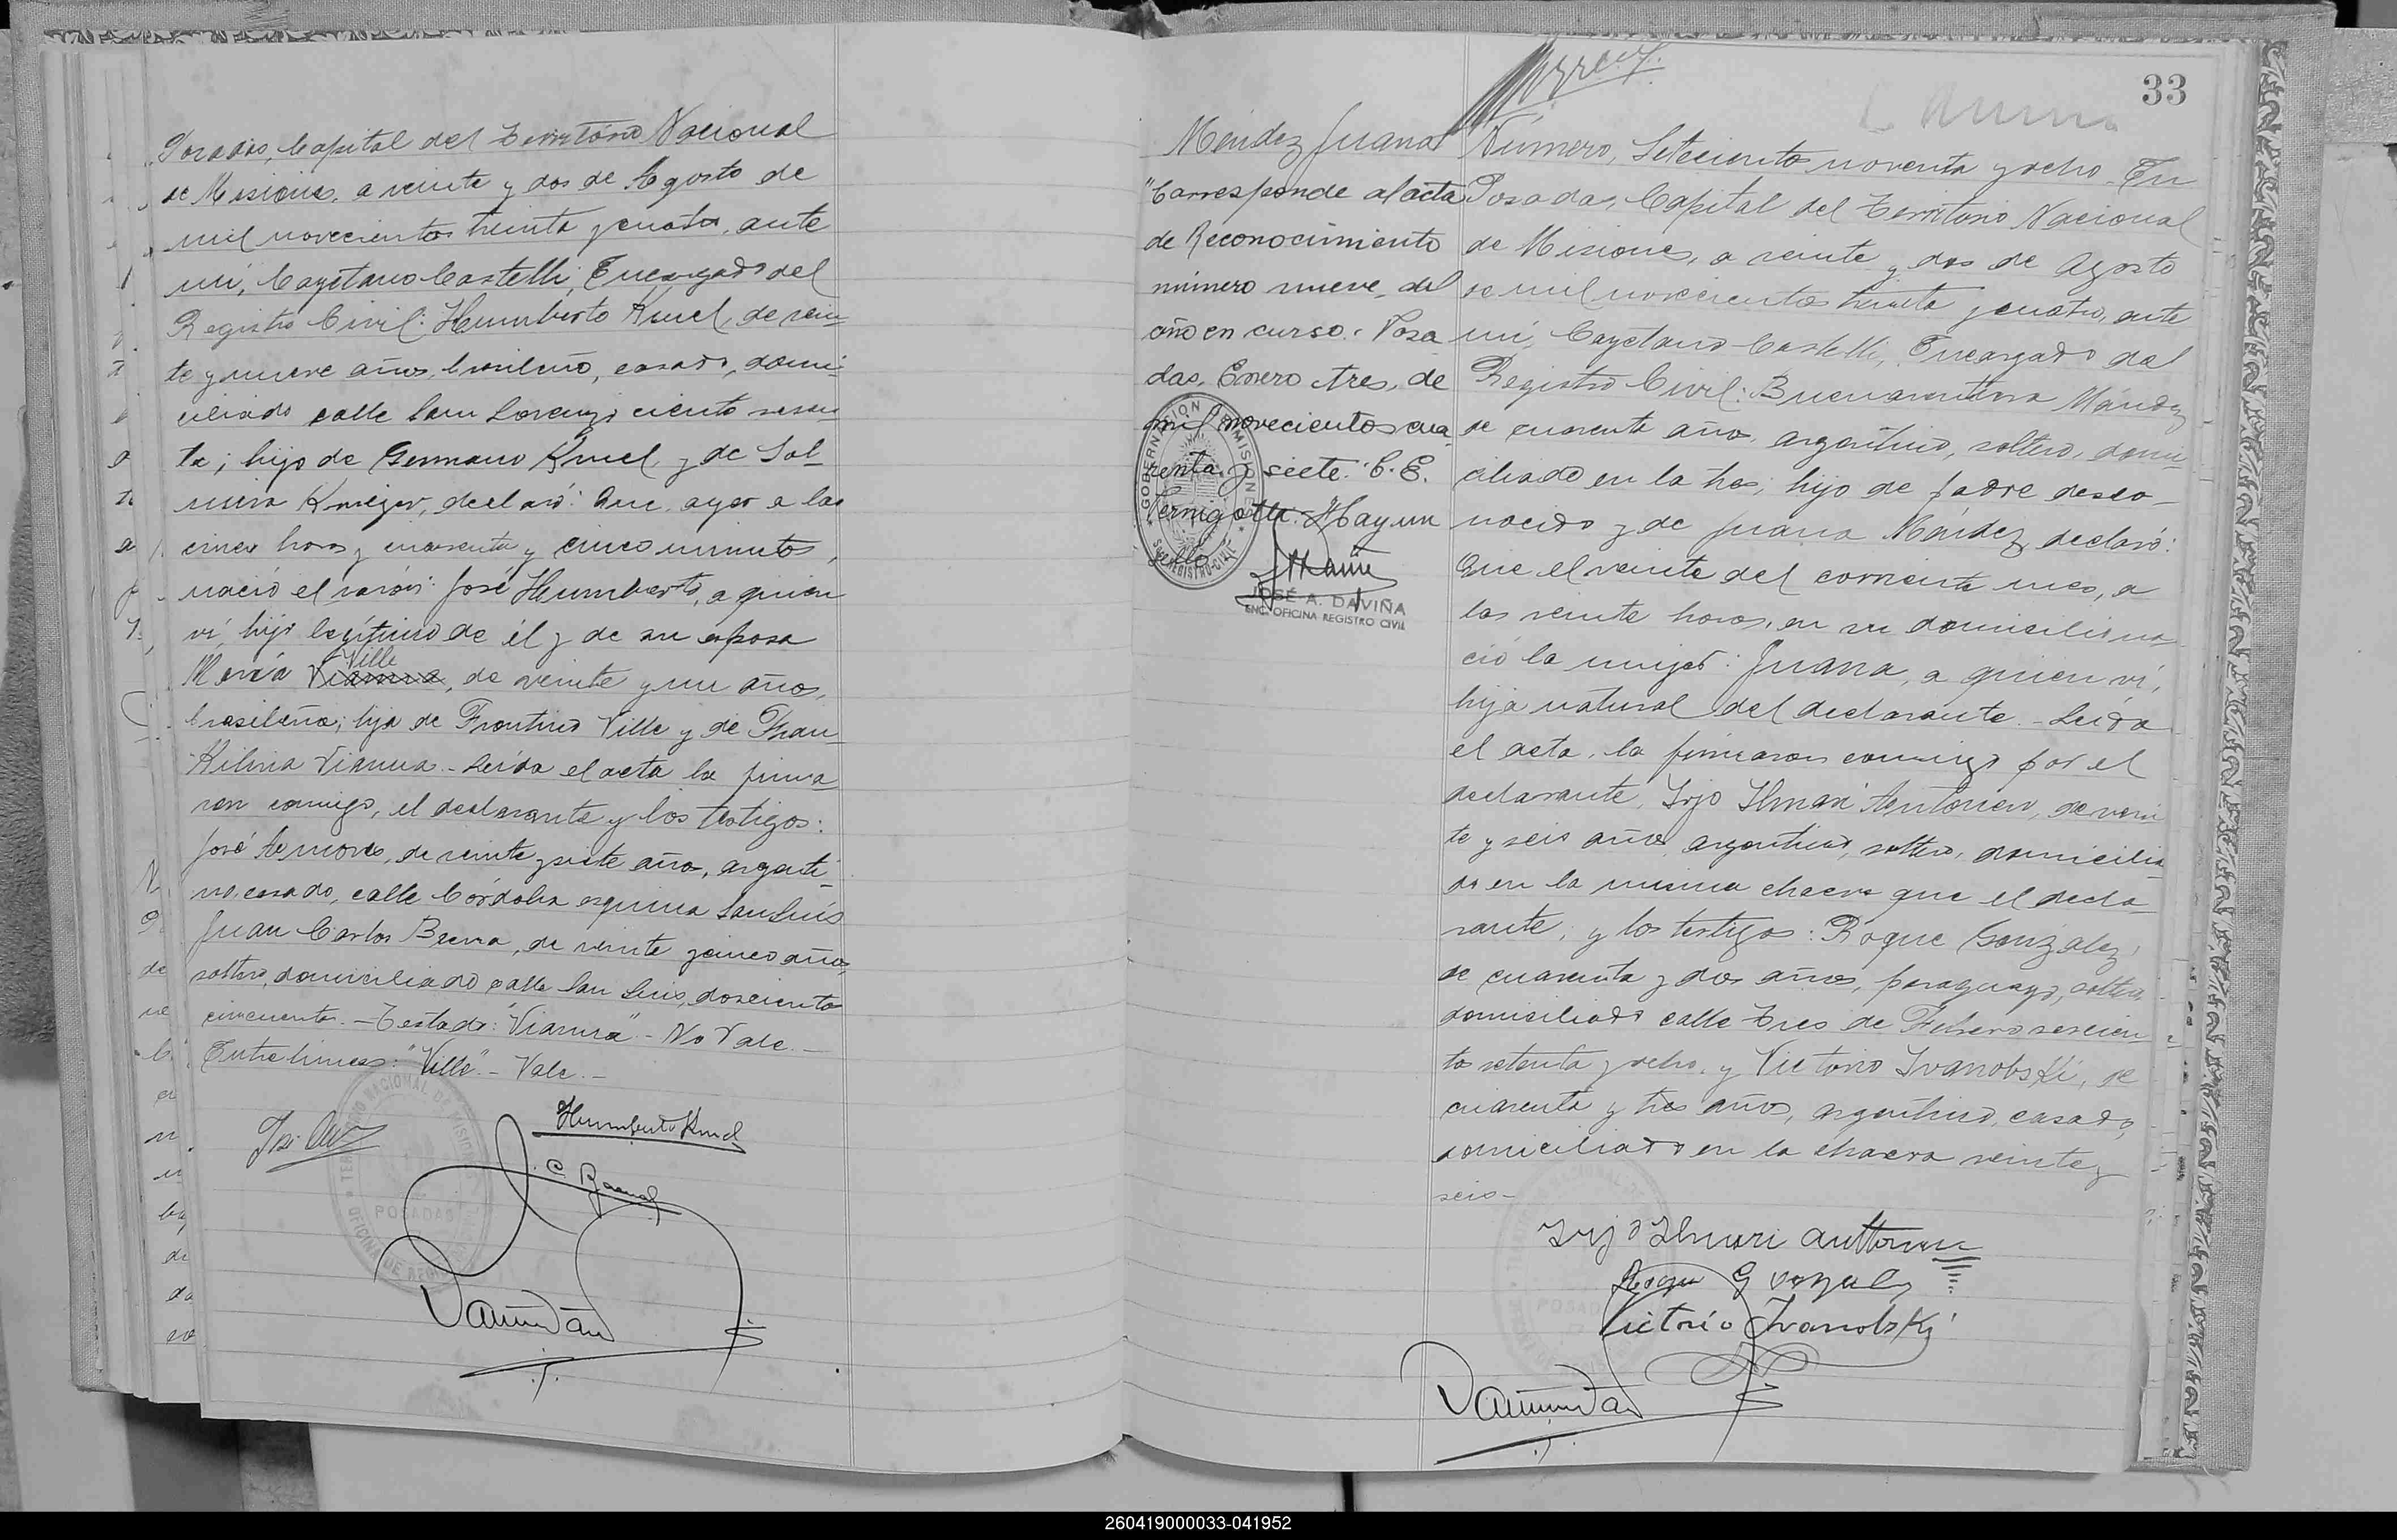 Posadas, Capital del Territorio Nacional
de Misiones, a veinte y dos de Agosto de
mil novecientos treinta y cuatro, ante
mí, Cayetano Castelli, Encargado del
Registro Civil: Humberto Kruel, de vein-
te y nueve años, brasileño, casado, domi-
ciliado calle San Lorenzo ciento sesen-
ta; hijo de Germano Kruel y de
declaró: Que, ayer a las
cinco horas y cuarenta y cinco minutos,
nació el varón: José Humberto, a quien
ví, hijo legítimo de él y de su esposa
Ville
María Vianna, de veinte y un años,
brasileña; hija de Frontino Ville y de Fran-
Vianna.- Leída el acta la firma
ron conmigo, el declarante y los testigos:
José de veinte y siete años, argenti-
no, casado, calle Córdoba esquina San Luis
Juan Carlos de veinte y cinco años,
soltero, domiciliado calle San Luis, doscientos
cincuenta.- Testado: "Vianna" - No Vale.-
Entrelíneas: "Ville".- Vale.-
Humberto Kruel
TERRITORIO NACIONAL DE MISIONES
POSADAS
OFICINA DE REGISTRO
33
Méndez Juana
"Corresponde al acta
de Reconocimiento
número nueve, del
año en curso. Posa
das, Enero tres, de
mil novecientos cua
renta y siete. C. E.
Vernigotte. Hay un
sello
GOBERNACION DE MISIONES
REGISTRO CIVIL
JOSÉ A. DAVIÑA
ENC. OFICINA REGISTRO CIVIL
Número, Setecientos noventa y ocho. En
Posadas, Capital del Territorio Nacional
de Misiones, a veinte y dos de Agosto
de mil novecientos treinta y cuatro, ante
mí, Cayetano Castelli, Encargado del
Registro Civil: Buenaventura Méndez
de cuarenta años, argentino, soltero, domi-
ciliado en la hijo de padre desco-
nocido y de Juana Méndez, declaró:
Que el veinte del corriente mes, a
las veinte horas, en su domicilio na-
ció la mujer: Juana, a quien ví,
hija natural del declarante.- Leída
el acta, la firmaron conmigo por el
declarante, Yrjo Ilmari de vein
te y seis años, argentino, soltero, domicilia-
do en la misma chacra que el decla-
rante; y los testigos: Roque González,
de cuarenta y dos años, paraguayo, soltero
domiciliado calle Tres de Febrero seiscien
tos setenta y ocho, y Victorio Ivanobski, de
cuarenta y tres años, argentino, casado,
domiciliado en la chacra veinte y
seis-
Yrjo Ilmari
Roque Gonzalez
Victorio Ivanobski
260419000033-041952